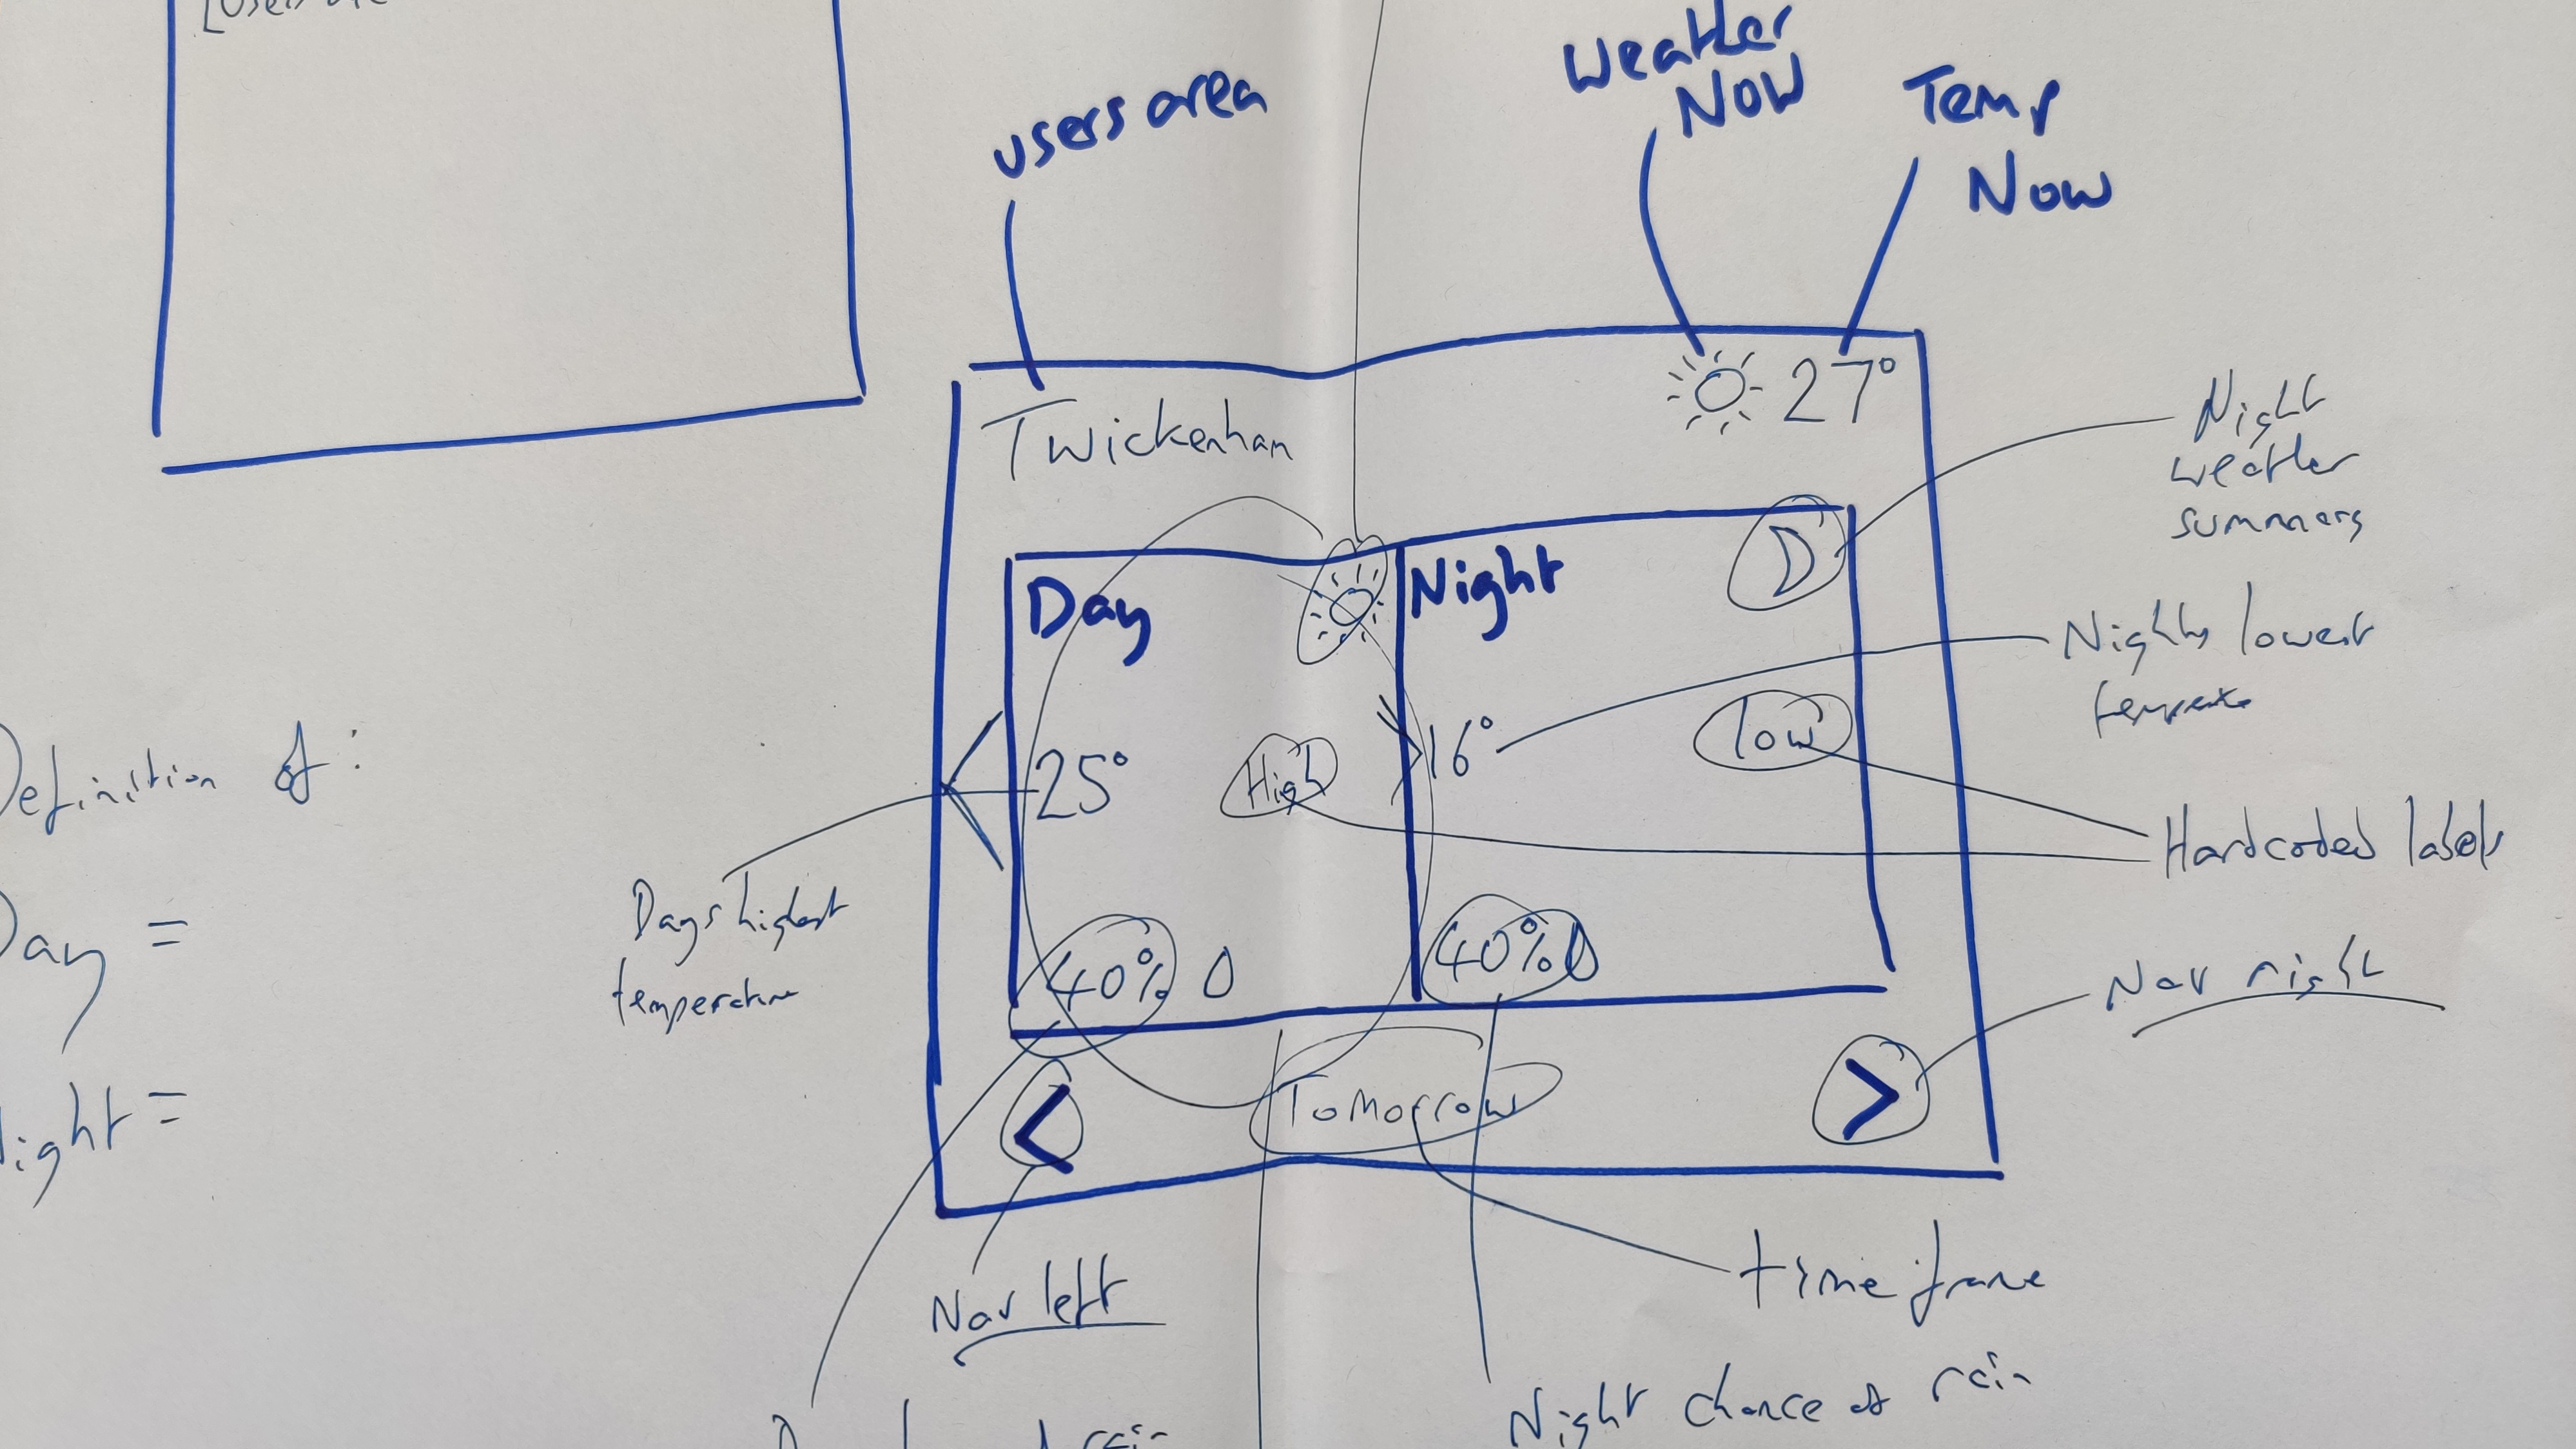 users area
Weather
NOW
Temp
Now
Twickenham
27°
Night
weather
summary
Day
Night
Nights lowest
25°
High
16°
low
Hardcoded labels
Definition of:
Day =
Night =
Days highest
temperature
40%
40%
Nav right
Tomorrow
<
>
Nav left
time frame
Night chance of rain
rain